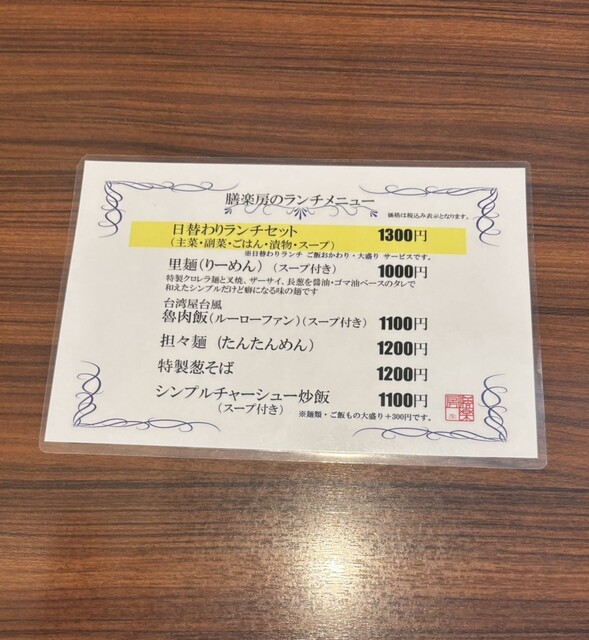 膳楽房のランチメニュー
価格は税込み表示となります。
日替わりランチセット 1300円
(主菜・副菜・ごはん・漬物・スープ)
※日替わりランチ ご飯おかわり・大盛り サービスです。
里麺(りーめん) (スープ付き) 1000円
特製クロレラ麺と叉焼、ザーサイ、長葱を醤油・ゴマ油ベースのタレで
和えたシンプルだけど癖になる味の麺です
台湾屋台風
魯肉飯(ルーローファン)(スープ付き) 1100円
担々麺 (たんたんめん) 1200円
特製葱そば 1200円
シンプルチャーシュー炒飯 1100円
(スープ付き)
※麺類・ご飯もの大盛り+300円です。